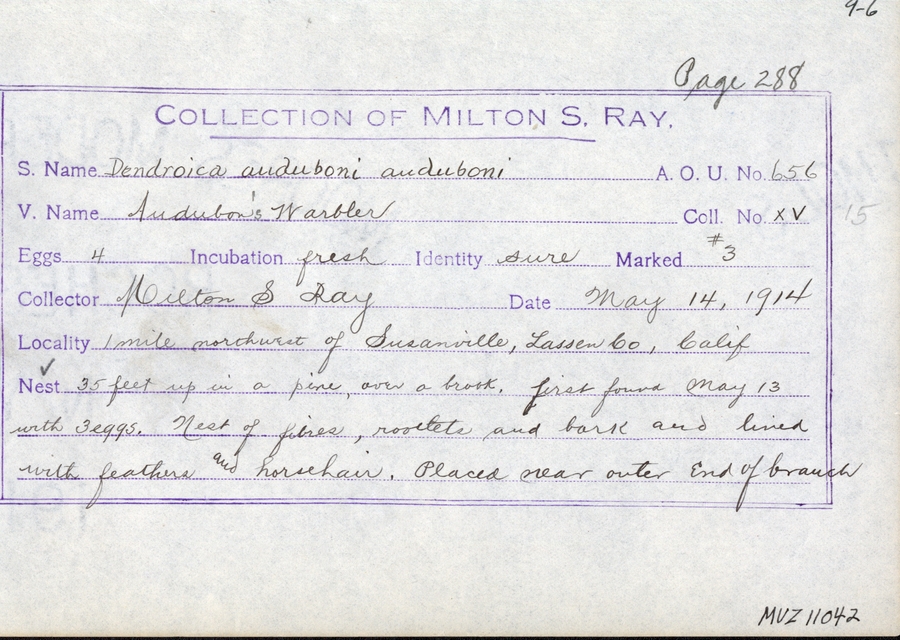 9-6
Page 288
COLLECTION OF MILTON S. RAY.
S. Name Dendroica auduboni auduboni A. O. U. No. 656
V. Name Audubon's Warbler Coll. No. XV 15
Eggs 4 Incubation fresh Identity sure Marked #3
Collector Milton S Ray Date May 14, 1914
Locality 1 mile northwest of Susanville, Lassen Co, Calif
✓
Nest 35 feet up in a pine, over a brook. first found May 13
with 3 eggs. Nest of fibres, rootlets and bark and lined
with feathers and horsehair. Placed near outer End of branch
MVZ 11042